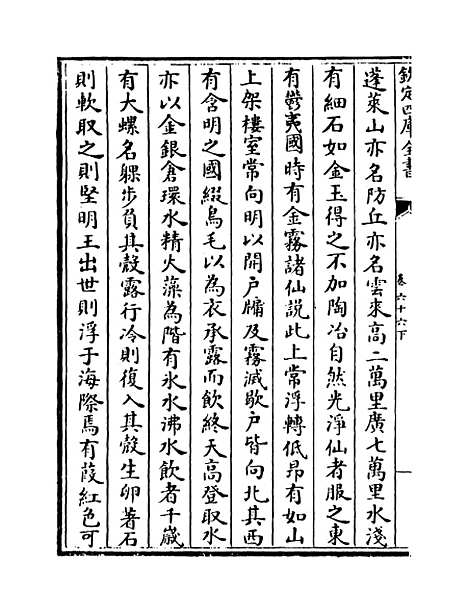 欽定四庫全書
卷六十六下
蓬萊山亦名防丘亦名雲來高二萬里廣七萬里水淺
有細石如金玉得之不加陶冶自然光淨仙者服之東
有鬱夷國時有金霧諸仙説此上常浮轉低昂有如山
上架樓室常向明以開戶牖及霧滅歇戶皆向北其西
有含明之國綴鳥毛以為衣承露而飲終天高登取水
亦以金銀倉環水精火藻為階有氷水沸水飲者千歲
有大螺名躶步負其殼露行冷則復入其殼生卵著石
則軟取之則堅明王出世則浮于海際焉有葭紅色可